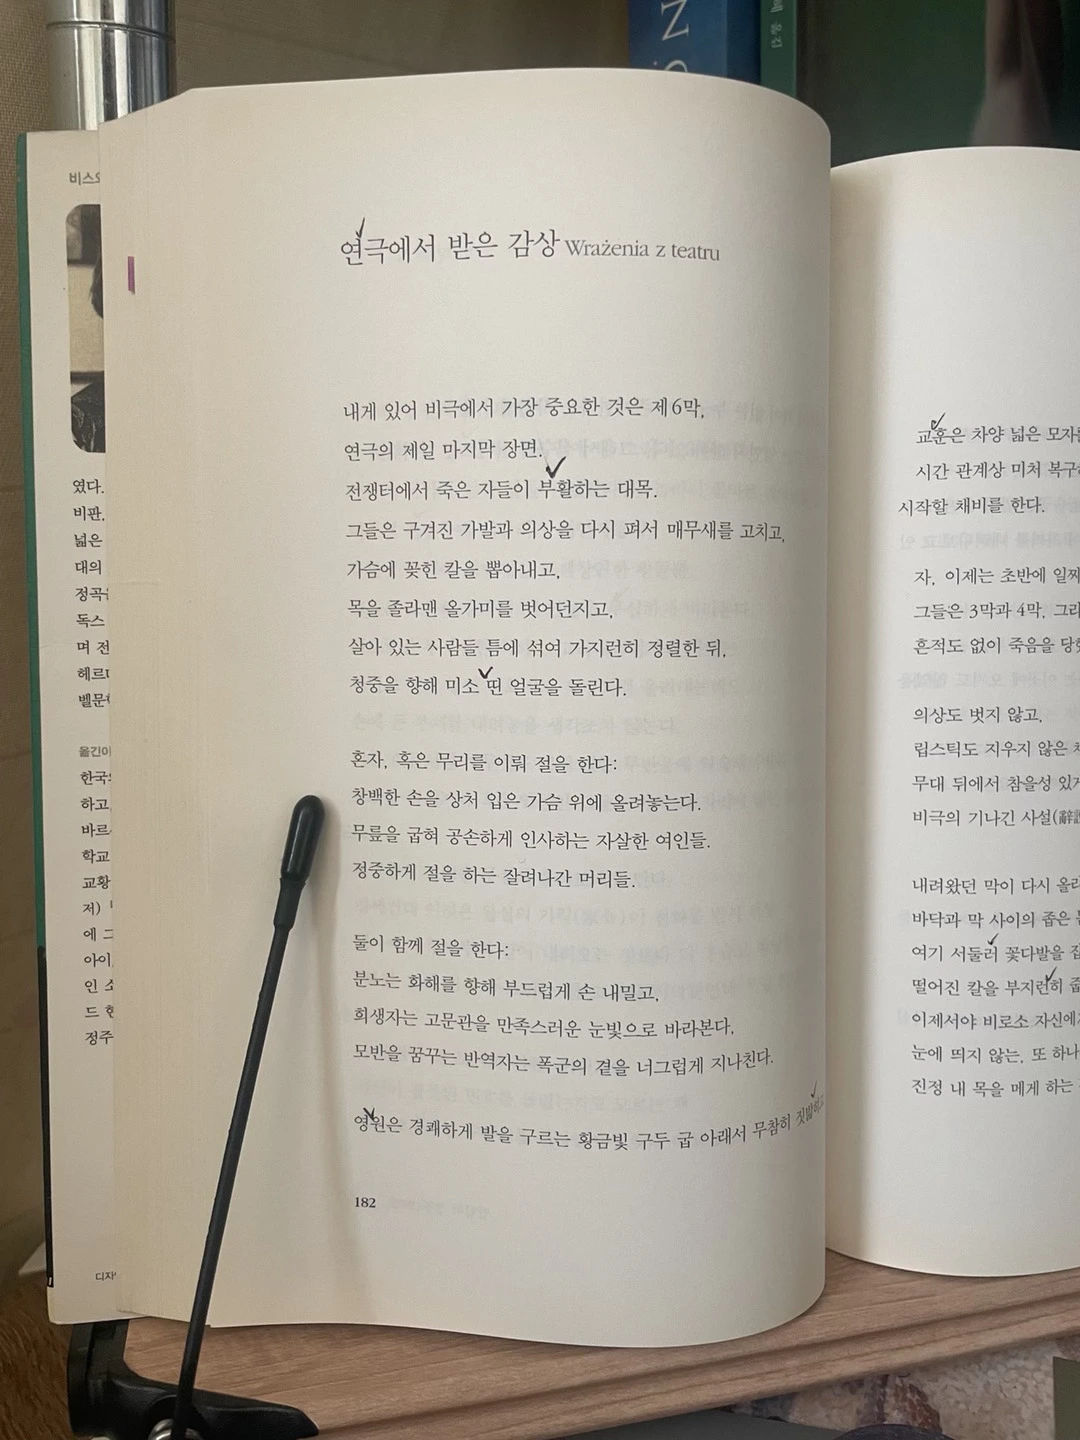 비스와
였다.
비판,
넓은
대의
독스
며 전
옮긴이
하고
학교
교황
저)
에 그
인 소
정주
N
S
옮김
연극에서 받은 감상 Wrażenia z teatru
내게 있어 비극에서 가장 중요한 것은 제6막,
연극의 제일 마지막 장면.
전쟁터에서 죽은 자들이 부활하는 대목.
그들은 구겨진 가발과 의상을 다시 펴서 매무새를 고치고,
가슴에 꽂힌 칼을 뽑아내고,
목을 졸라맨 올가미를 벗어던지고,
살아 있는 사람들 틈에 섞여 가지런히 정렬한 뒤,
청중을 향해 미소 띤 얼굴을 돌린다.
혼자, 혹은 무리를 이뤄 절을 한다:
창백한 손을 상처 입은 가슴 위에 올려놓는다.
무릎을 굽혀 공손하게 인사하는 자살한 여인들.
정중하게 절을 하는 잘려나간 머리들.
둘이 함께 절을 한다:
분노는 화해를 향해 부드럽게 손 내밀고,
희생자는 고문관을 만족스러운 눈빛으로 바라본다,
모반을 꿈꾸는 반역자는 폭군의 곁을 너그럽게 지나친다.
영원은 경쾌하게 발을 구르는 황금빛 구두 굽 아래서 무참히 짓밟히고
182
교훈은 차양 넓은 모자를
시간 관계상 미처 복구
시작할 채비를 한다.
자, 이제는 초반에 일찌
그들은 3막과 4막, 그리
흔적도 없이 죽음을 당
의상도 벗지 않고,
립스틱도 지우지 않은 채
무대 뒤에서 참을성 있게
비극의 기나긴 사설(辭
내려왔던 막이 다시 올라
바닥과 막 사이의 좁은
여기 서둘러 꽃다발을
떨어진 칼을 부지런히
이제서야 비로소 자신에
눈에 띄지 않는, 또 하나
진정 내 목을 메게 하는